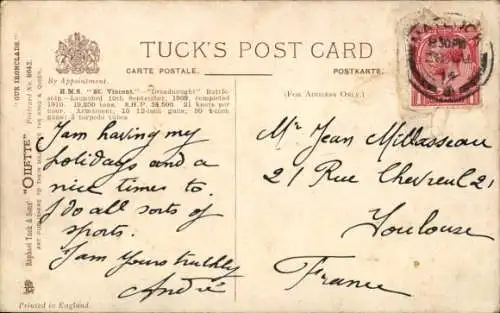 TUCK'S POST CARD
CARTE POSTALE.
POSTKARTE.
By Appointment.
(For Address Only.)
H.M.S. "St. Vincent."—"Dreadnought" Battle-
ship—Launched 10th September, 1908, completed
1910. 19,250 tons. S.H.P. 24,500. 21 knots per
hour. Armament, 10 12-inch guns; 20 4-inch
guns; 3 torpedo tubes
I am having my
holidays and a
nice times to.
I do all sorts of
sports.
I am yours truthly
André
Mr Jean Millasseau
21 Rue Chevreul 21
Toulouse
France
"OUR IRONCLADS."
Postcard No.
Raphael Tuck & Sons' "OILETTE"
ART PUBLISHERS TO THEIR MAJESTIES THE KING & QUEEN.
Printed in England.
8.30 PM
14